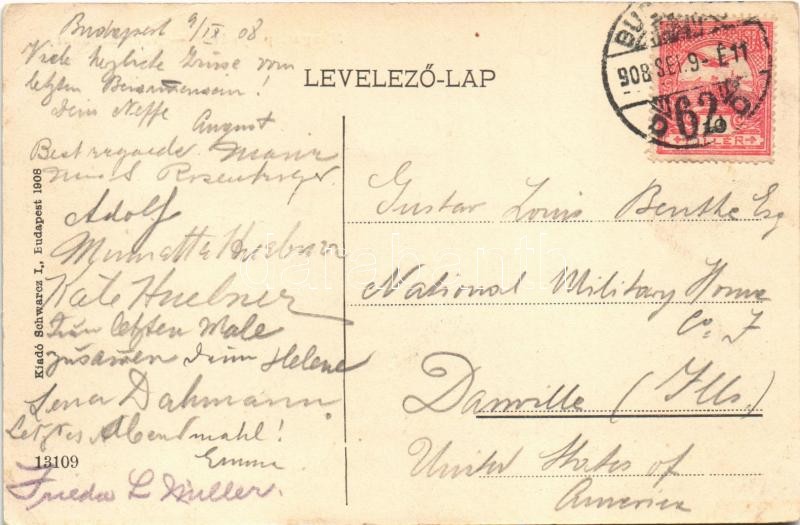 Budapest 9/IX 08
Viele herzliche Grüsse vom
letzten Beisammensein!
Dein Neffe
August
Best regards
Rosenberger
Adolf
Minnette Huebner
Kate Huebner
Zum letzten Male
zusamen Deine Helene
Lena Dahmann
Letztes Abendmahl!
Emma
Frieda L Muller.
13109
Kiadó Schwarcz I., Budapest 1908
LEVELEZŐ-LAP
908 SEP. 9 - É 11
62
10
Gustav Louis Benthe Esq
National Military Home
Co. F
Danville (Ills.)
United States of
America
darabanth